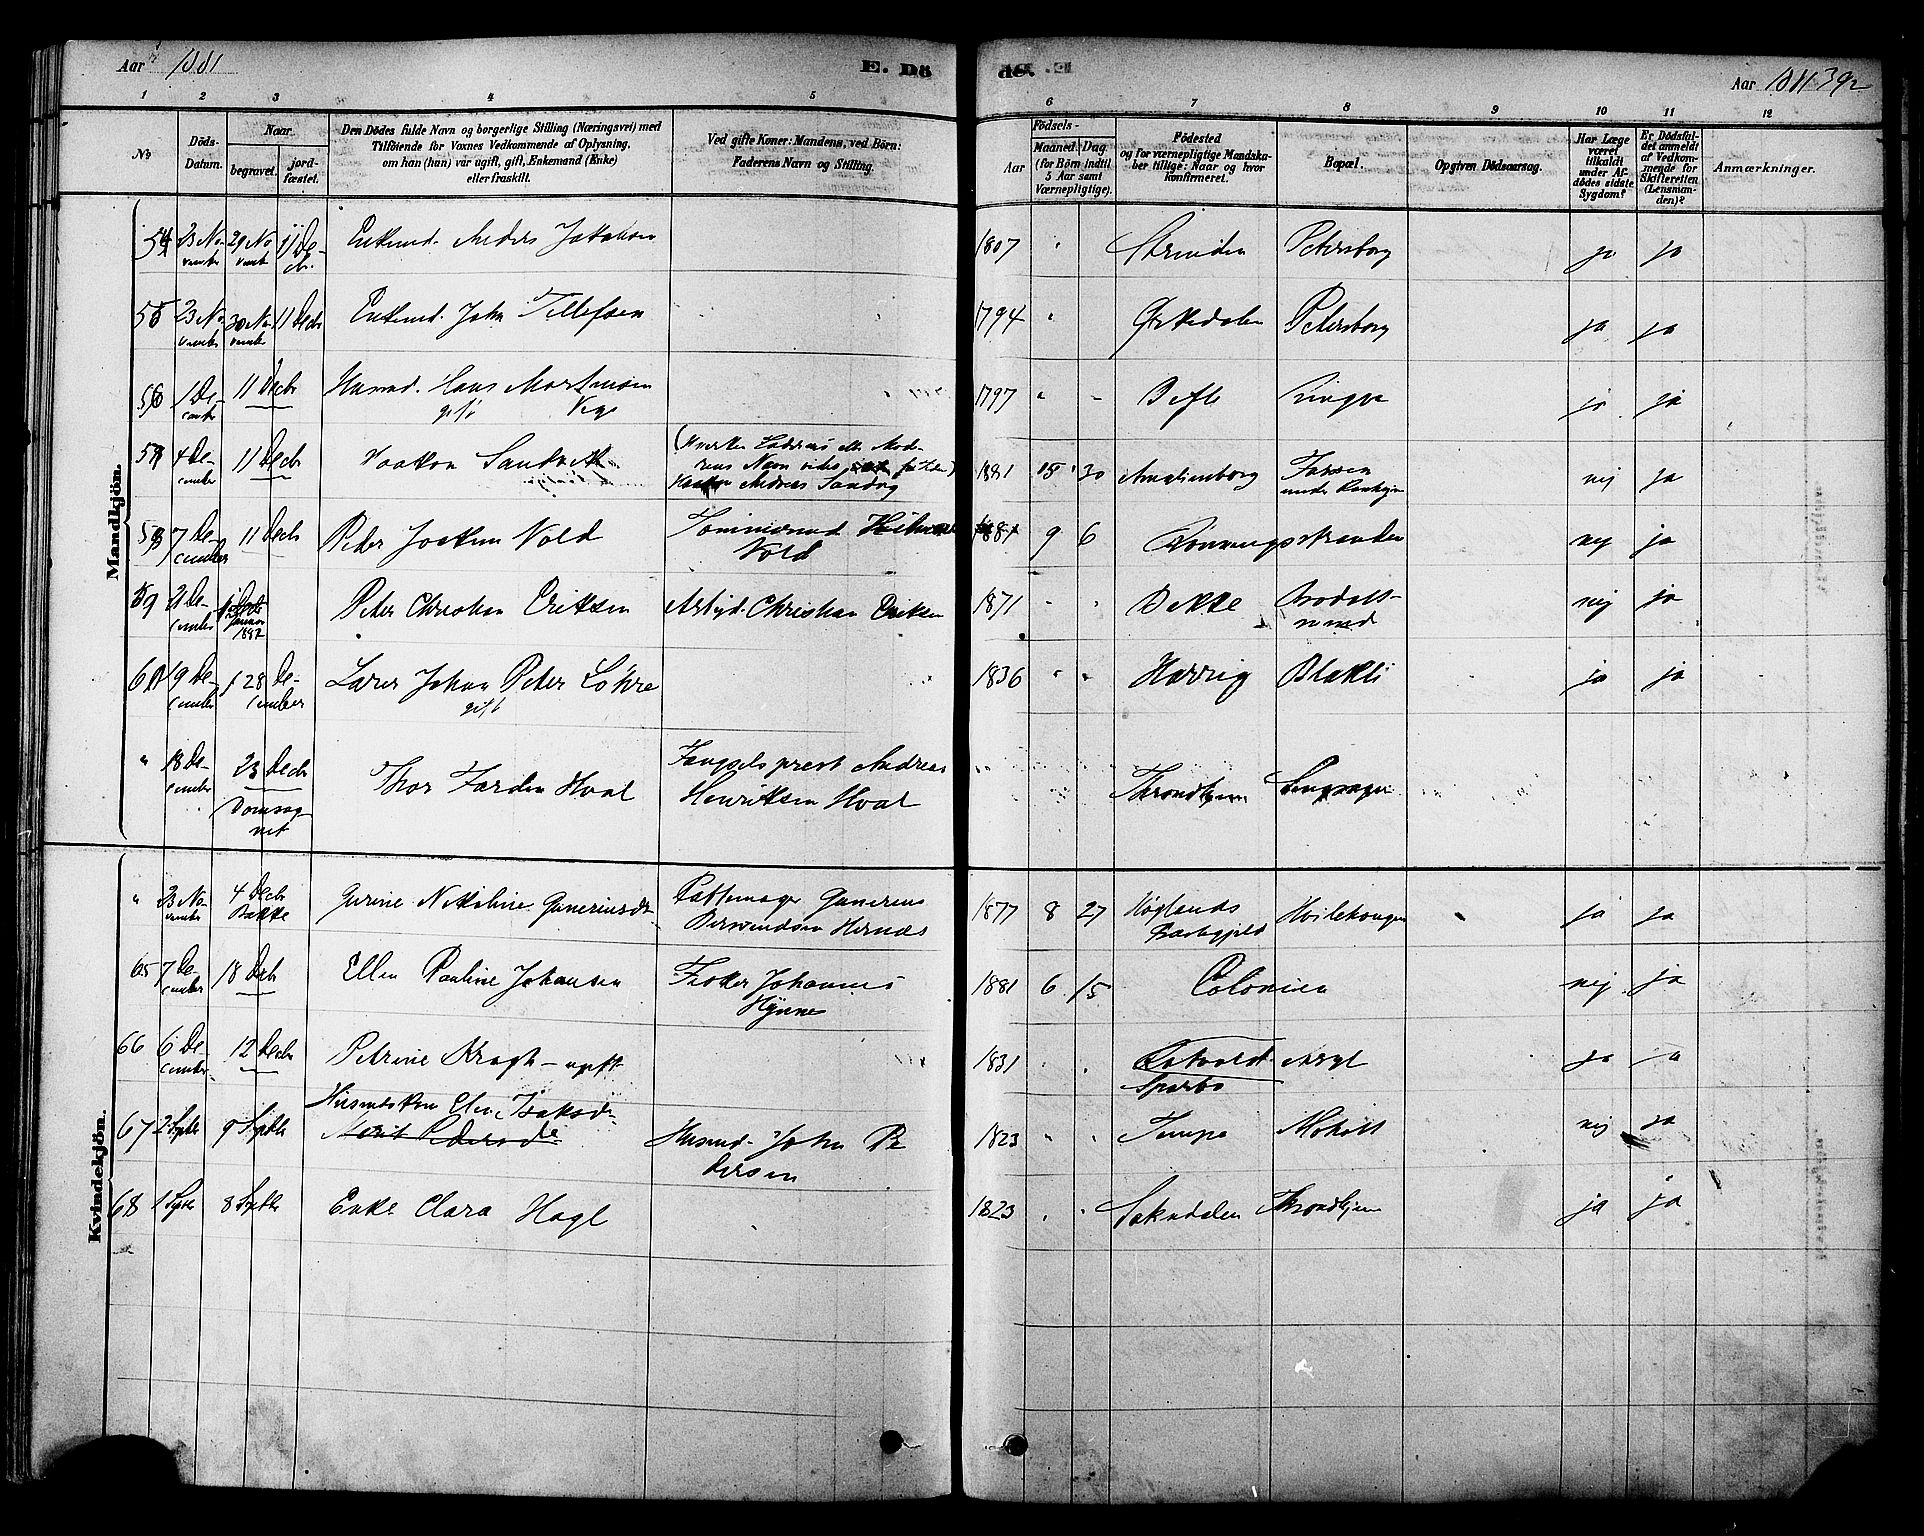 Aar 1881
E. Dö
de. E
Aar 1881 392
1 2 3 4 5 6 7 8 9 10 11 12
No
Döds-Datum.
Naar
begravet.
jordfæstet.
Den Dödes fulde Navn og borgerlige Stilling (Næringsvei) med
Tilföiende for Voxnes Vedkommende af Oplysning.
om han (hun) var ugift, gift, Enkemand (Enke)
eller fraskilt.
Ved gifte Koner: Mandens, ved Börn:
Faderens Navn og Stilling.
Födsels-
Aar
Maaned. Dag.
(for Börn indtil
5 Aar samt
Værnepligtige).
Födested
og for værnepligtige Mandska-
ber tillige: Naar og hvor
konfirmeret.
Bopæl.
Opgiven Dödsaarsag.
Har Læge
været
tilkaldt
under Af-
dödes sidste
Sygdom?
Er Dödsfal-
det anmeldt
af Vedkom-
mende for
Skifteretten
(Lensman-
den)?
Anmærkninger.
Mandkjön.
54 23 November 29 November 11 Decbr. Enkemd. Anders Jakobsen 1807 Strinden Petersborg ja ja
55 23 November 30 November 11 Decbr Enkemd. John Tellefsen 1794 Orkedalen Petersborg ja ja
56 1 December 11 Decbr Husmd. Hans Mortensen gift 1797 Ringve ja ja
57 4 December 11 Decbr Haakon Sandvik Andreas Sandvig 1881 30 Amalienborg nej ja
58 7 December 11 Decbr Peder Joakim Vold Tømmermd Vold 1881 9 6 Rønningsstranden nej ja
59 21 December Januar 1882 Peter Christian Eriksen Arbejd. Christian Eriksen 1871 Bakke nej ja
60 19 December 28 December Lars Johan Peter Löhre gift 1836 Blakli ja ja
" 18 December 23 Decbr Domsognet Thor Farden Hval Fængselsprest Andreas
Henriksen Hval Throndhjem
Kvindekjön.
" 23 November 4 Decbr Bakke Gurine Nikoline Guneriusdt. Pottemager Gunerius
Hernæs 1877 8 27 ja ja
65 7 December 18 Decbr Ellen Pauline Johansen Fisker Johannes
Hynne 1881 6 15 Colonien nej ja
66 6 December 12 Decbr Petrine Krogh - ugift 1831 Sparbo ja ja
67 2 Septbr 9 Septbr Husmdskone Isaksdr
Marit Pedersdr Husmd. John Pedersen 1823 Tempe Moholt nej ja
68 1 Septbr 8 Septbr Enke Clara Hagl 1823 Soknedalen Throndhjem ja ja